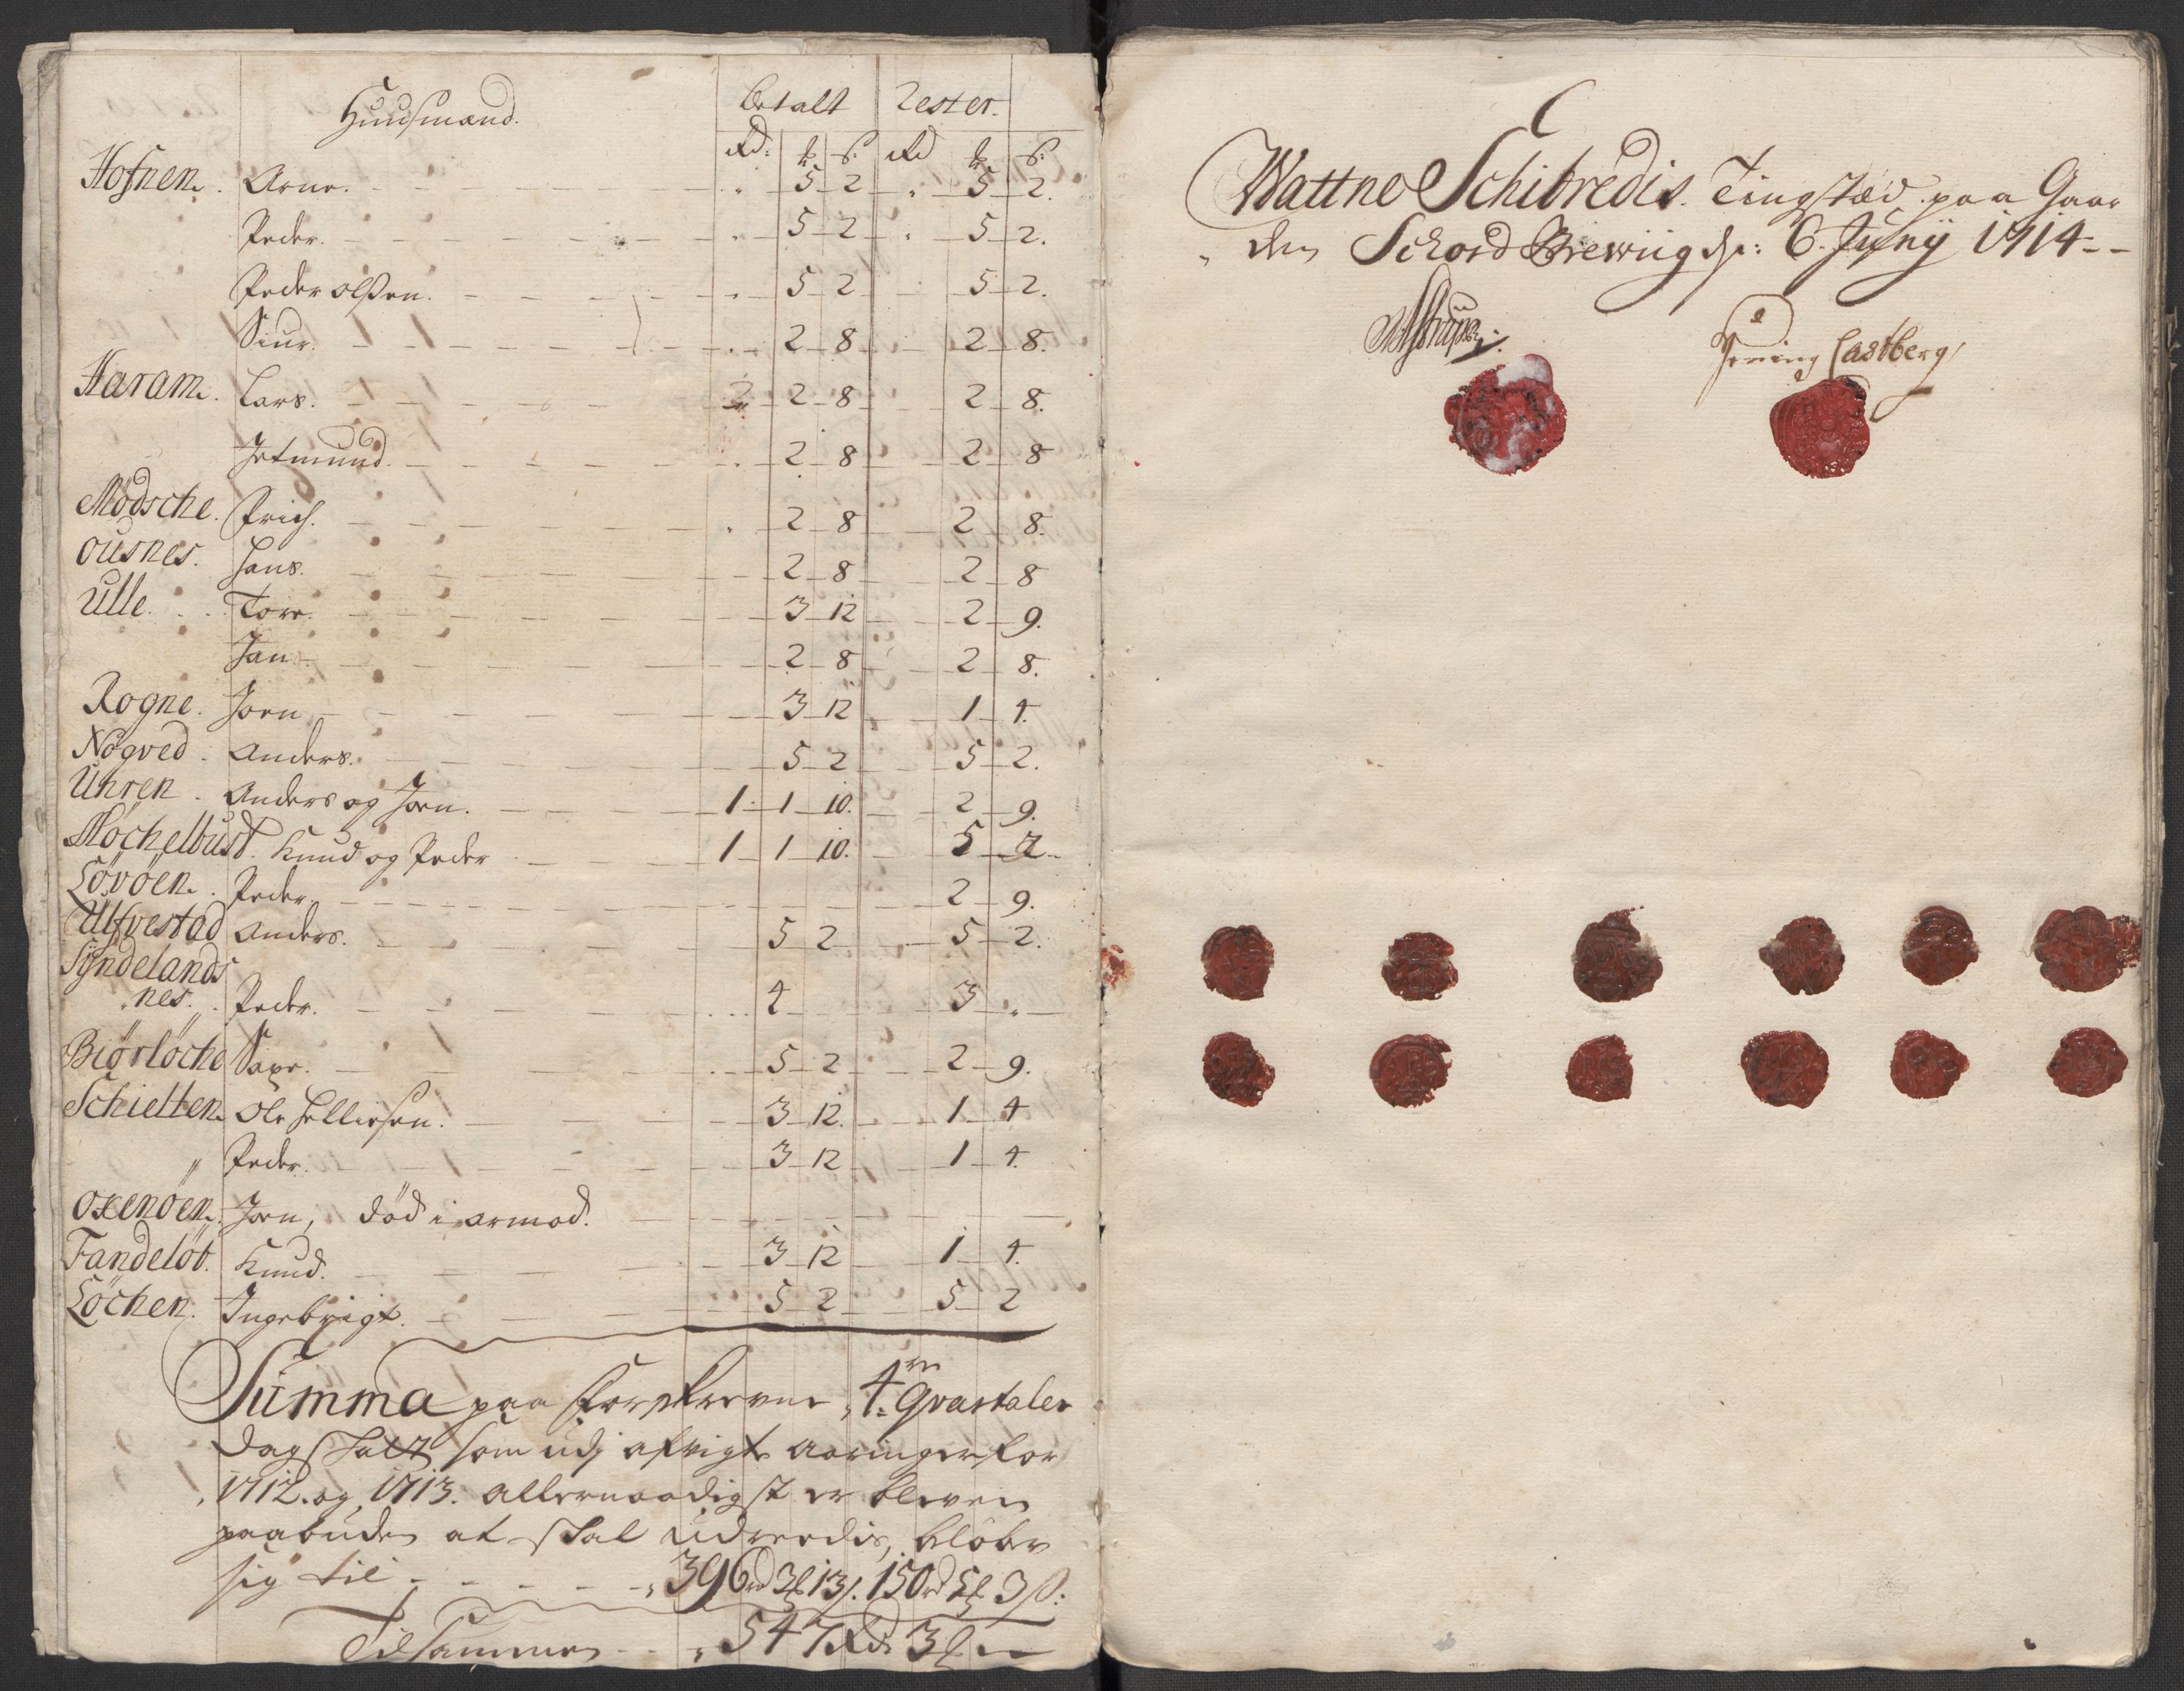 Huusmænd. betalt Rester.
Rd: ß. Rd ß:
Hofnen. Arne. 5 2 5 2.
Peder. 5 2 5 2.
Peder olßen. 5 2 5 2.
Siur. 2 8 2 8.
Haram. Lars. 2 8 2 8.
Jetmund. 2 8 2 8
Mödsche. Erich. 2 8 2 8.
ousnes. Hans. 2 8 2 8
Ulle. Tore. 3 12 2 9.
Jan 2 8 2 8.
Rogne. Joen 3 12 1 4.
Nogved. Anders. 5 2 5 2.
Uhren. Anders og Joen. 1 1 10. 2 9.
Möchelbust. Knud og Peder 1 1 10. 5 2
Lövöen. Peder 2 9.
Ulfvestad Anders. 5 2 5 2.
Syndelands
nes. Peder. 4 3
Biörlöche Saxe. 5 2 2 9.
Schielten Ole Helliesen. 3 12. 1 4
" Peder. 3 12 1 4.
oxenöen. Joen, död i armod.
Fandelöb. Knud. 3 12 1 4.
Löchen. Ingebrigt. 5 2 5 2
Summa paa forskrevne 4re Qvartaler
Dagskatt som udj afvigte aaringer for
1712. og 1713. allernaadigst er bleven
paabuden at skal udreedis, beløber
sig til 396 rd 3 13 ß. 150 rd 5 3 ß:
Tilsammen 547 Rd 3
Wattne Schibredis. Tingstæd paa Gaar
den Schord Brewiig d: 6. Juny 1714
Castberg